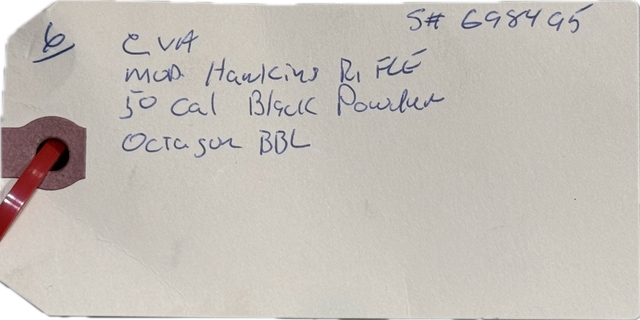 6
S# 698495
CVA
MOD. Hawkins RIFLE
50 Cal Black Powder
Octagon BBL